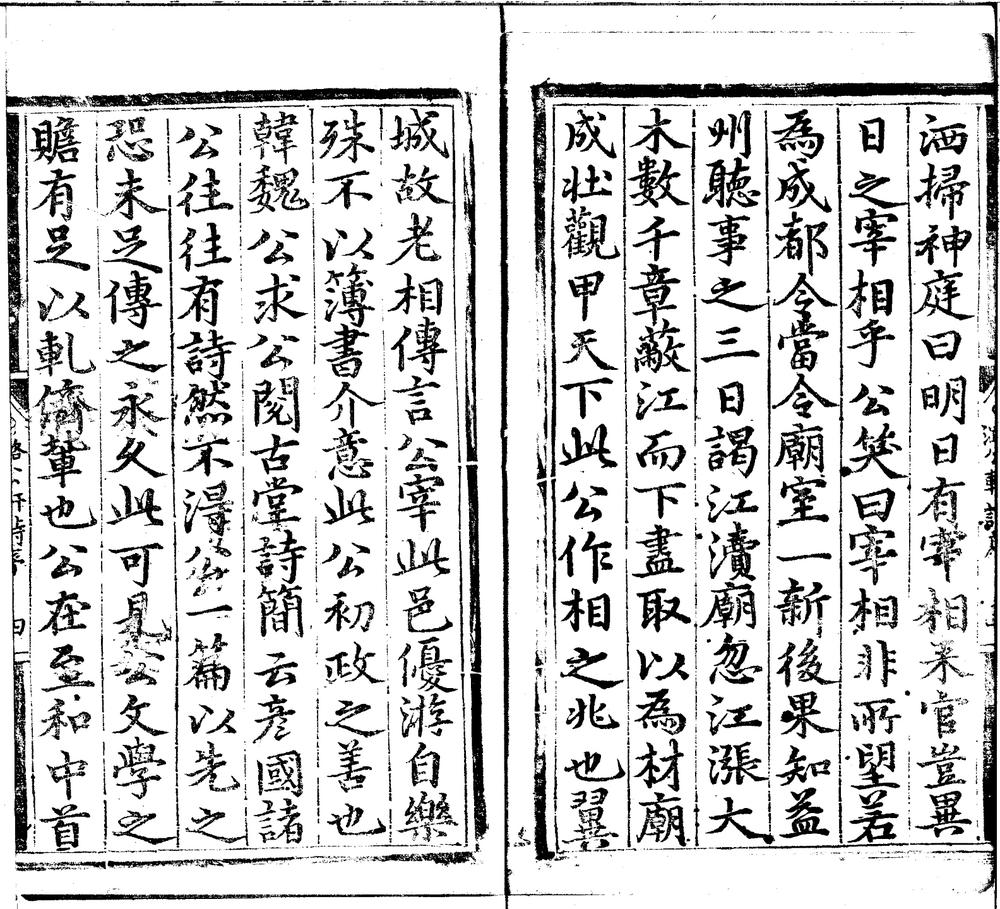 洒掃神庭曰明日有宰相来官豈異
日之宰相乎公笑曰宰相非所望若
為成都令當令廟室一新後果知益
州聽事之三日謁江瀆廟忽江漲大
木數千章蔽江而下盡取以為材廟
成壯觀甲天下此公作相之兆也翼
城故老相傳言公宰此邑優游自樂
殊不以簿書介意此公初政之善也
韓魏公求公閱古堂詩簡云彦國諸
公往往有詩然不得公一篇以先之
恐未足傳之永久此可見公文學之
贍有足以軋儕輩也公在至和中首